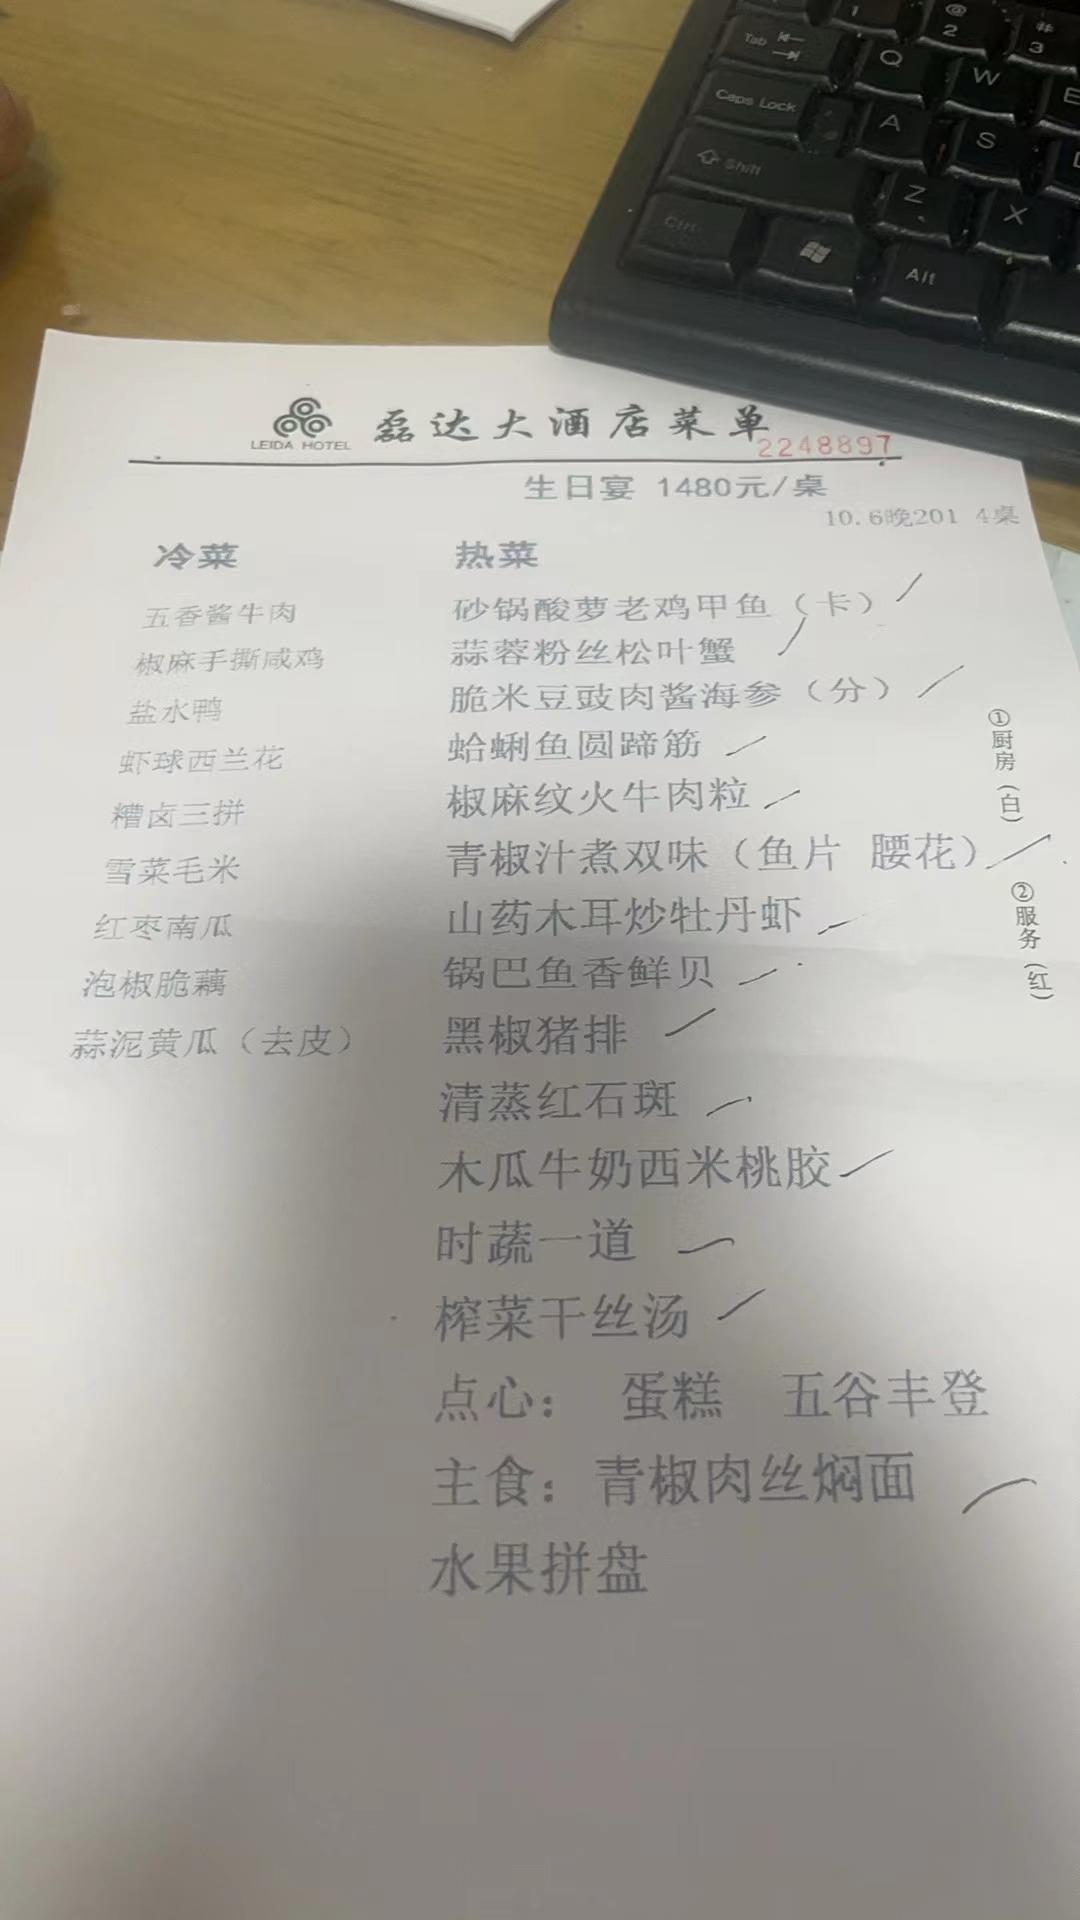 Tab
1
@
2
#
3
Q
W
E
Caps Lock
A
S
Shift
Z
X
Ctrl
Alt
LEIDA HOTEL
磊达大酒店菜单
2248897
生日宴 1480元/桌
10.6晚201 4桌
冷菜
五香酱牛肉
椒麻手撕咸鸡
盐水鸭
虾球西兰花
糟卤三拼
雪菜毛米
红枣南瓜
泡椒脆藕
蒜泥黄瓜（去皮）
热菜
砂锅酸萝老鸡甲鱼（卡）
蒜蓉粉丝松叶蟹
脆米豆豉肉酱海参（分）
蛤蜊鱼圆蹄筋
椒麻纹火牛肉粒
青椒汁煮双味（鱼片 腰花）
山药木耳炒牡丹虾
锅巴鱼香鲜贝
黑椒猪排
清蒸红石斑
木瓜牛奶西米桃胶
时蔬一道
榨菜干丝汤
点心： 蛋糕 五谷丰登
主食：青椒肉丝焖面
水果拼盘
①厨房(白)
②服务(红)